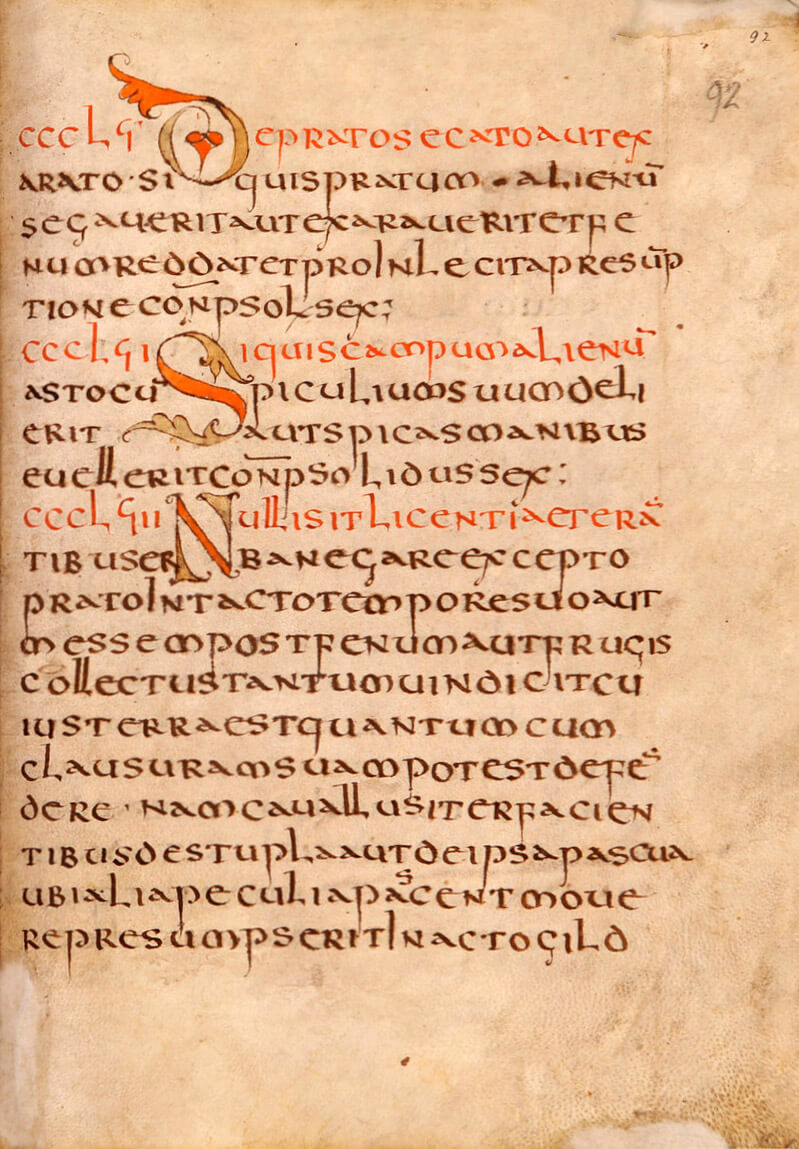 92
92
cccLϛ De prato secato autex
arato · Si quis pratum · alienū
segauerit aut exarauerit et fe
num reddat et pro inlecita presūp
tione conp sol sex;
cccLϛi Si quis campum alienū
asto cū piculium suum deli
erit aut spicas manibus
euellerit conp solidus sex;
cccLϛii Nulli sit licentia eterā
tibus erba negare excepto
prato intacto tempore suo aut
messem post fenum aut frugis
collectus tantum uindicit cu
ius terra est quantum cum
clausuram suam potest defē
dere · nam cauallus iter facien
tibus de stupla aut de ipsa pascua
ubi alia peculia pascent moue
re presumpserit in actogild